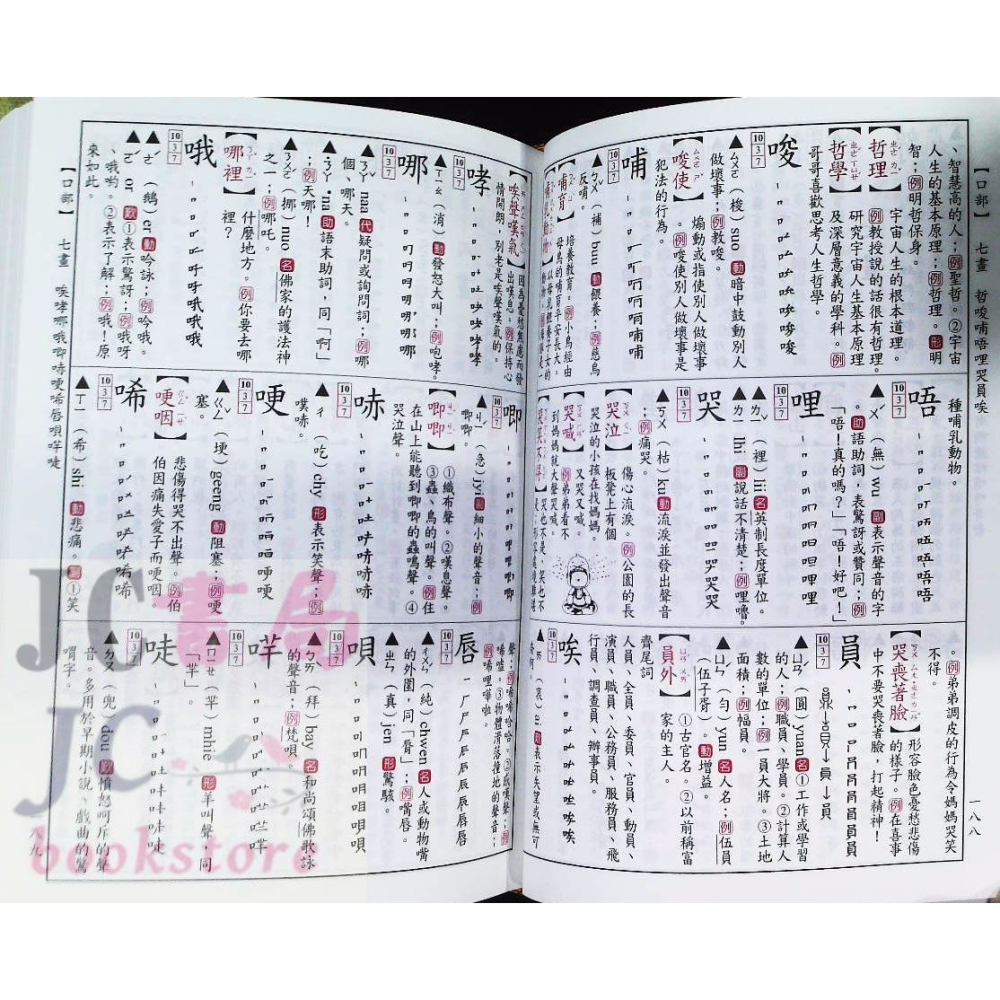 一八八
【口部】 七畫 哲唆哺唔哩哭員唉
、智慧高的人；例聖哲。②宇宙
人生的基本原理；例哲理。形明
智；例明哲保身。
【哲理】 宇宙人生的根本道理。
例教授說的話很有哲理。
【哲學】 研究宇宙人生基本原理
及深層意義的學科。例
哥哥喜歡思考人生哲學。
唆
10 3 7
▲ㄙㄨㄛ（梭）suo 動暗中鼓動別人
做壞事；例教唆。
【唆使】 煽動或指使別人做壞事
。例唆使別人做壞事是
犯法的行為。
哺
10 3 7
▲ㄅㄨˇ（補）buu 動餵養；例慈烏
反哺。
【哺育】 培養教育。例小鳥經由
種哺乳動物。
唔
10 3 7
▲ㄨˊ（無）wu 副表示聲音的字
。助語助詞，表驚訝或贊同；例
「唔！真的嗎？」「唔！好吧！」
哩
10 3 7
▲ㄌㄧˇ（裡）lii 名英制長度單位。
▲ㄌㄧ lhi 副說話不清楚；例哩嚕。
哭
10 3 7
▲ㄎㄨ（枯）ku 動流淚並發出聲音
；例痛哭。
【哭泣】 傷心流淚。例公園的長
板凳上有個
哭泣的小孩在找媽媽。
【哭喊】 又哭又喊。
例弟弟看不
到媽媽就大聲哭喊。
不得。例弟弟調皮的行為令媽媽哭笑
【哭喪著臉】 形容臉色憂愁悲傷
的樣子。例在喜事
中不要哭喪著臉，打起精神！
員
10 3 7
▲ㄩㄢˊ（圓）yuan 名①工作或學習
的人；例職員、學員。②計算人
數的單位；例一員大將。③土地
面積；例幅員。
▲ㄩㄣˊ（勻）yun 名人名；例伍員
（伍子胥）。動增益。
【員外】 ①古官名。②以前稱富
家的主人。
齊尾詞
人員、全員、委員、官員、動員、
演員、職員、公務員、服務員、飛
行員、調查員、辦事員。
唉
10 3 7
【唉聲嘆氣】 因為憂愁焦慮而發
出嘆息。例保持心
情開朗，別老是唉聲嘆氣的。
哮
10 3 7
▲ㄒㄧㄠ（消） 動發怒大叫；例咆哮。
哪
10 3 7
▲ㄋㄚˇ naa 代疑問或詢問詞；例哪
個、哪天。
▲ㄋㄚ˙ ˙na 助語末助詞，同「啊」
；例天哪！
▲ㄋㄨㄛˊ（挪）nuo 名佛家的護法神
之一；例哪吒。
【哪裡】 什麼地方。例你要去哪
裡？
哦
10 3 7
▲ㄜˊ（鵝）er 動吟詠；例吟哦。
▲ㄛˊ or 歎①表示驚訝；例哦呀
、哦喲。②表示了解；例哦！原
來如此。
唧
10 3 7
▲ㄐㄧˊ（急）jyi 副細小的聲音；例
唧唧。
【唧唧】 ①織布聲。②嘆息聲。
③蟲、鳥的叫聲。例住
在山上能聽到唧唧的蟲鳴聲。④
哭泣聲。
哧
10 3 7
▲ㄔ（吃）chy 形表示笑聲；例
噗哧。
哽
10 3 7
▲ㄍㄥˇ（埂）geeng 動阻塞；例哽
塞。
【哽咽】 悲傷得哭不出聲。例伯
伯因痛失愛子而哽咽
唏
10 3 7
▲ㄒㄧ（希）shi 動悲痛。副①笑
聲；例唏唏哈哈。②感嘆聲；例
唏噓。③物體滑落撞地的聲音；
例唏哩嘩啦。
唇
10 3 7
▲ㄔㄨㄣˊ（純）chwen 名人或動物嘴
的外圍，同「脣」；例嘴唇。
▲ㄓㄣ（真）jen 形驚駭。
唄
10 3 7
▲ㄅㄞˋ（拜）bay 名和尚頌佛歌詠
的聲音；例梵唄。
哶
10 3 7
▲ㄇㄧㄝ（芈）mhie 形羊叫聲；同
「羋」。
唗
10 3 7
▲ㄉㄡ（兜）dou 歎憤怒呵斥的聲
音。多用於早期小說、戲曲的驚
嘆字。
【口部】 七畫 唉哮哪哦唧哧哽唏唇唄哶唗
一八九
JC書局
JC
bookstore